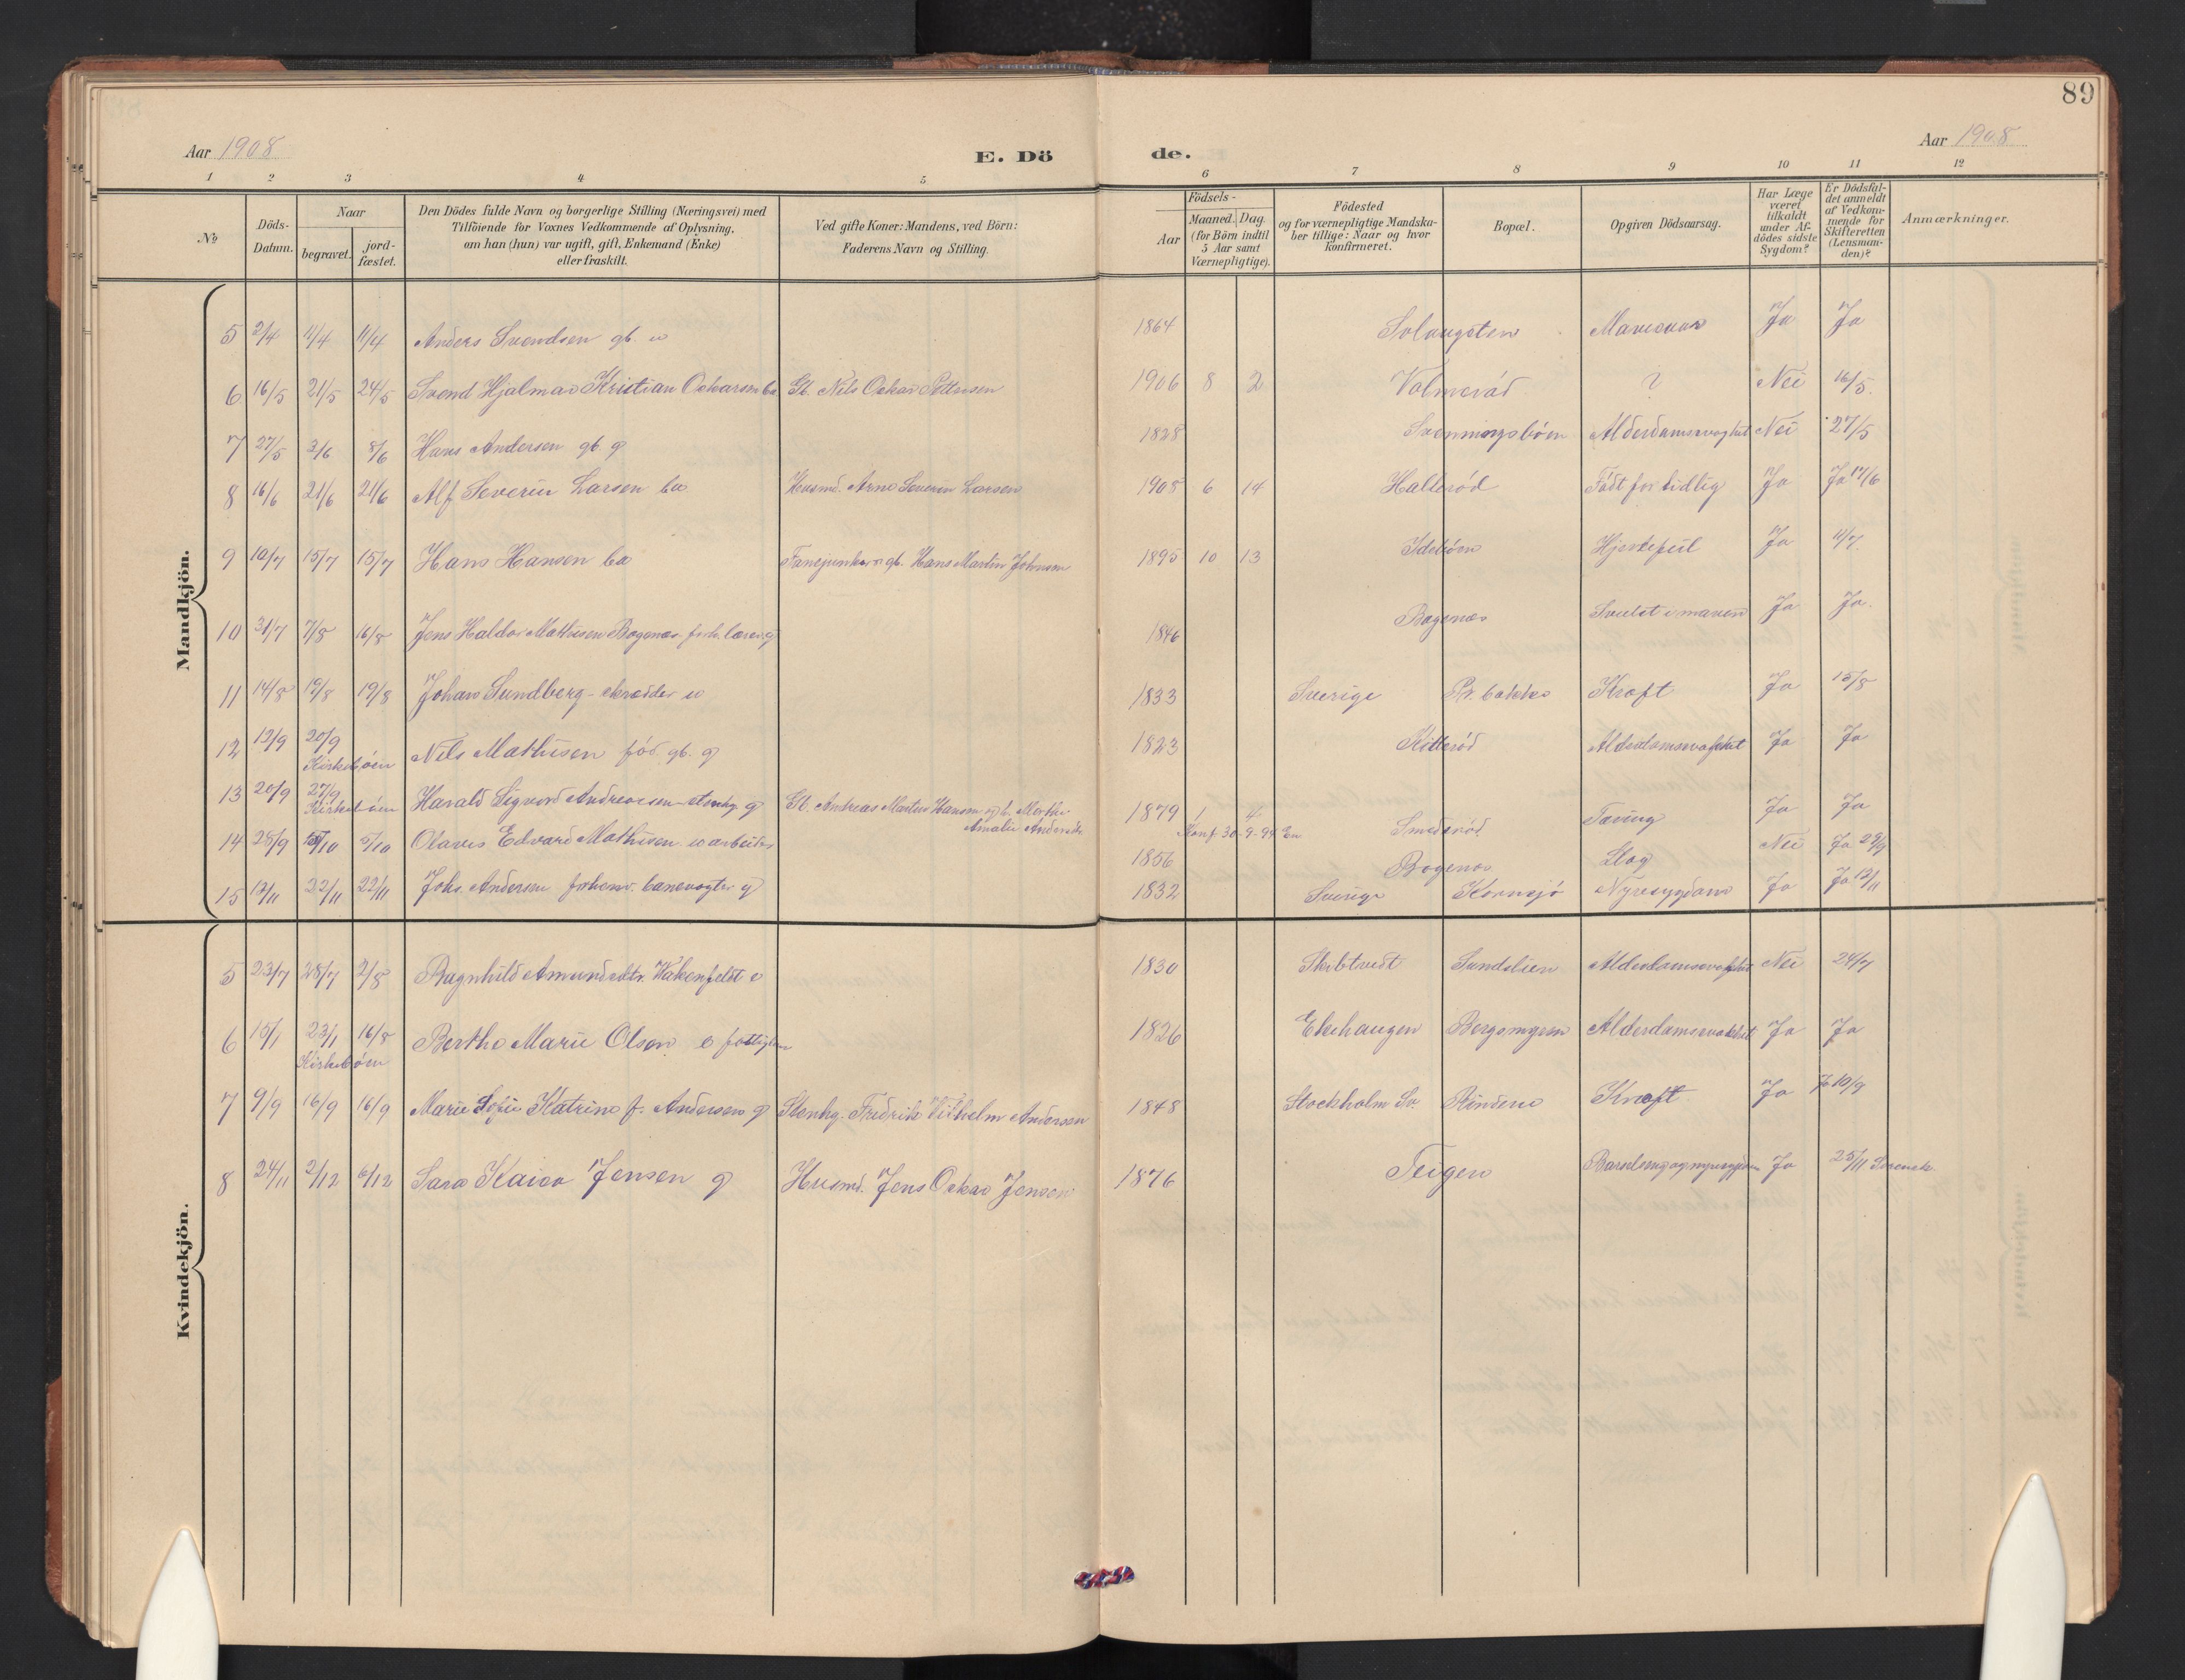 89
Aar 1908
E. Dö
de.
Aar 1908
1 2 3 4 5 6 7 8 9 10 11 12
No
Döds-Datum.
Naar
begravet.
jord-fæstet.
Den Dödes fulde Navn og borgerlige Stilling (Næringsvei) med
Tilföiende for Voxnes Vedkommende af Oplysning,
om han (hun) var ugift, gift, Enkemand (Enke)
eller fraskilt.
Ved gifte Koner: Mandens, ved Börn:
Faderens Navn og Stilling.
Födsels-
Aar
Maaned. Dag
(for Börn indtil
5 Aar samt
Værnepligtige).
Födested
og for værnepligtige Mandska-
ber tillige: Naar og hvor
konfirmeret.
Bopæl.
Opgiven Dödsaarsag.
Har Læge
været
tilkaldt
under Af-
dödes sidste
Sygdom?
Er Dödsfal-
det anmeldt
af Vedkom-
mende for
Skifteretten
(Lensman-
den)?
Anmærkninger.
Mandkjön.
5 2/4 11/4 11/4 Anders Svendsen gb. 1864 Ja Ja
6 16/5 21/5 24/5 Svend Hjalmar Kristian Oskarsen ba Gb. Nils Oskar Pettersen 1906 8 2 ? Nei 16/5
7 27/5 3/6 8/6 Hans Andersen gb. g 1828 Svenningsböen Alderdomssvaghet Nei 27/5
8 16/6 21/6 21/6 Alf Severin Larsen ba Husmd. Arne Severin Larsen 1908 6 14 Halleröd Födt for tidlig Ja Ja 17/6
9 10/7 15/7 15/7 Hans Hansen ba Fanejunker gb. Hans Martin Johnsen 1895 10 13 Hjertefeil Ja 11/7
10 31/7 7/8 16/8 Jens Haldor Mathisen Bogenæs forh. lærer g 1846 Bogenæs Svulst i maven Ja Ja
11 14/8 19/8 19/8 Johan Sundberg - skrædder 1833 Sverige Pr. bakke Kræft Ja 15/8
12 12/9 20/9 Kirkeböen Nils Mathisen föd. gb. g 1823 Kitteröd Alderdomssvaghet Ja Ja
13 20/9 27/9 Kirkeböen Harald Sigvard Andreassen - stenhg. g Gb. Andreas Martin Hansen og h. Marthe
Amalie Andersdr 1879 1 4
Konf 30-9-94 En Smederöd Tæring Ja Ja
14 28/9 5/10 5/10 Olaves Edvard Mathisen arbeider 1856 Bogenæs Slag Nei Ja 29/9
15 12/11 22/11 22/11 Johs. Andersen forhenv. banevogter g 1832 Sverige Kornsjö Nyresygdom Ja Ja 13/11
Kvindekjön.
5 23/7 28/7 2/8 Ragnhild Amundsdtr. Wakenfeldt e 1830 Skibtvedt Sundslien Alderdomssvaghet Nei 24/7
6 15/1 23/1 16/8 Kirkeböen Berthe Marie Olsen e fattiglem 1826 Ekehaugen Bergsmyren Alderdomssvakhet Ja Ja
7 9/9 16/9 16/9 Marie Sofie Katrine f. Andersen g Stenhg. Fredrik Vilhelm Andersen 1848 Stockholm Sv. Kræft Ja Ja 10/9
8 24/11 2/12 6/12 Sara Kaisa Jensen g Husmd. Jens Oskar Jensen 1876 Teigen Barselseng og nyresygdom Ja 25/11 Svensk